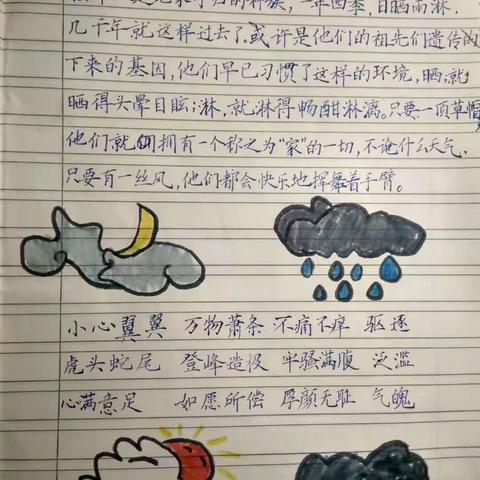 几千年就这样过去了。或许是他们的祖先们遗传的
下来的基因,他们早已习惯了这样的环境,晒,就
晒得头晕目眩;淋,就淋得畅酣淋漓。只要一顶草帽
他们就拥有一个称之为“家”的一切,不论什么天气,
只要有一丝风,他们都会快乐地挥舞着手臂。
小心翼翼 万物萧条 不痛不痒 驱逐
虎头蛇尾 登峰造极 牢骚满腹 泛滥
心满意足 如愿所偿 厚颜无耻 气魄